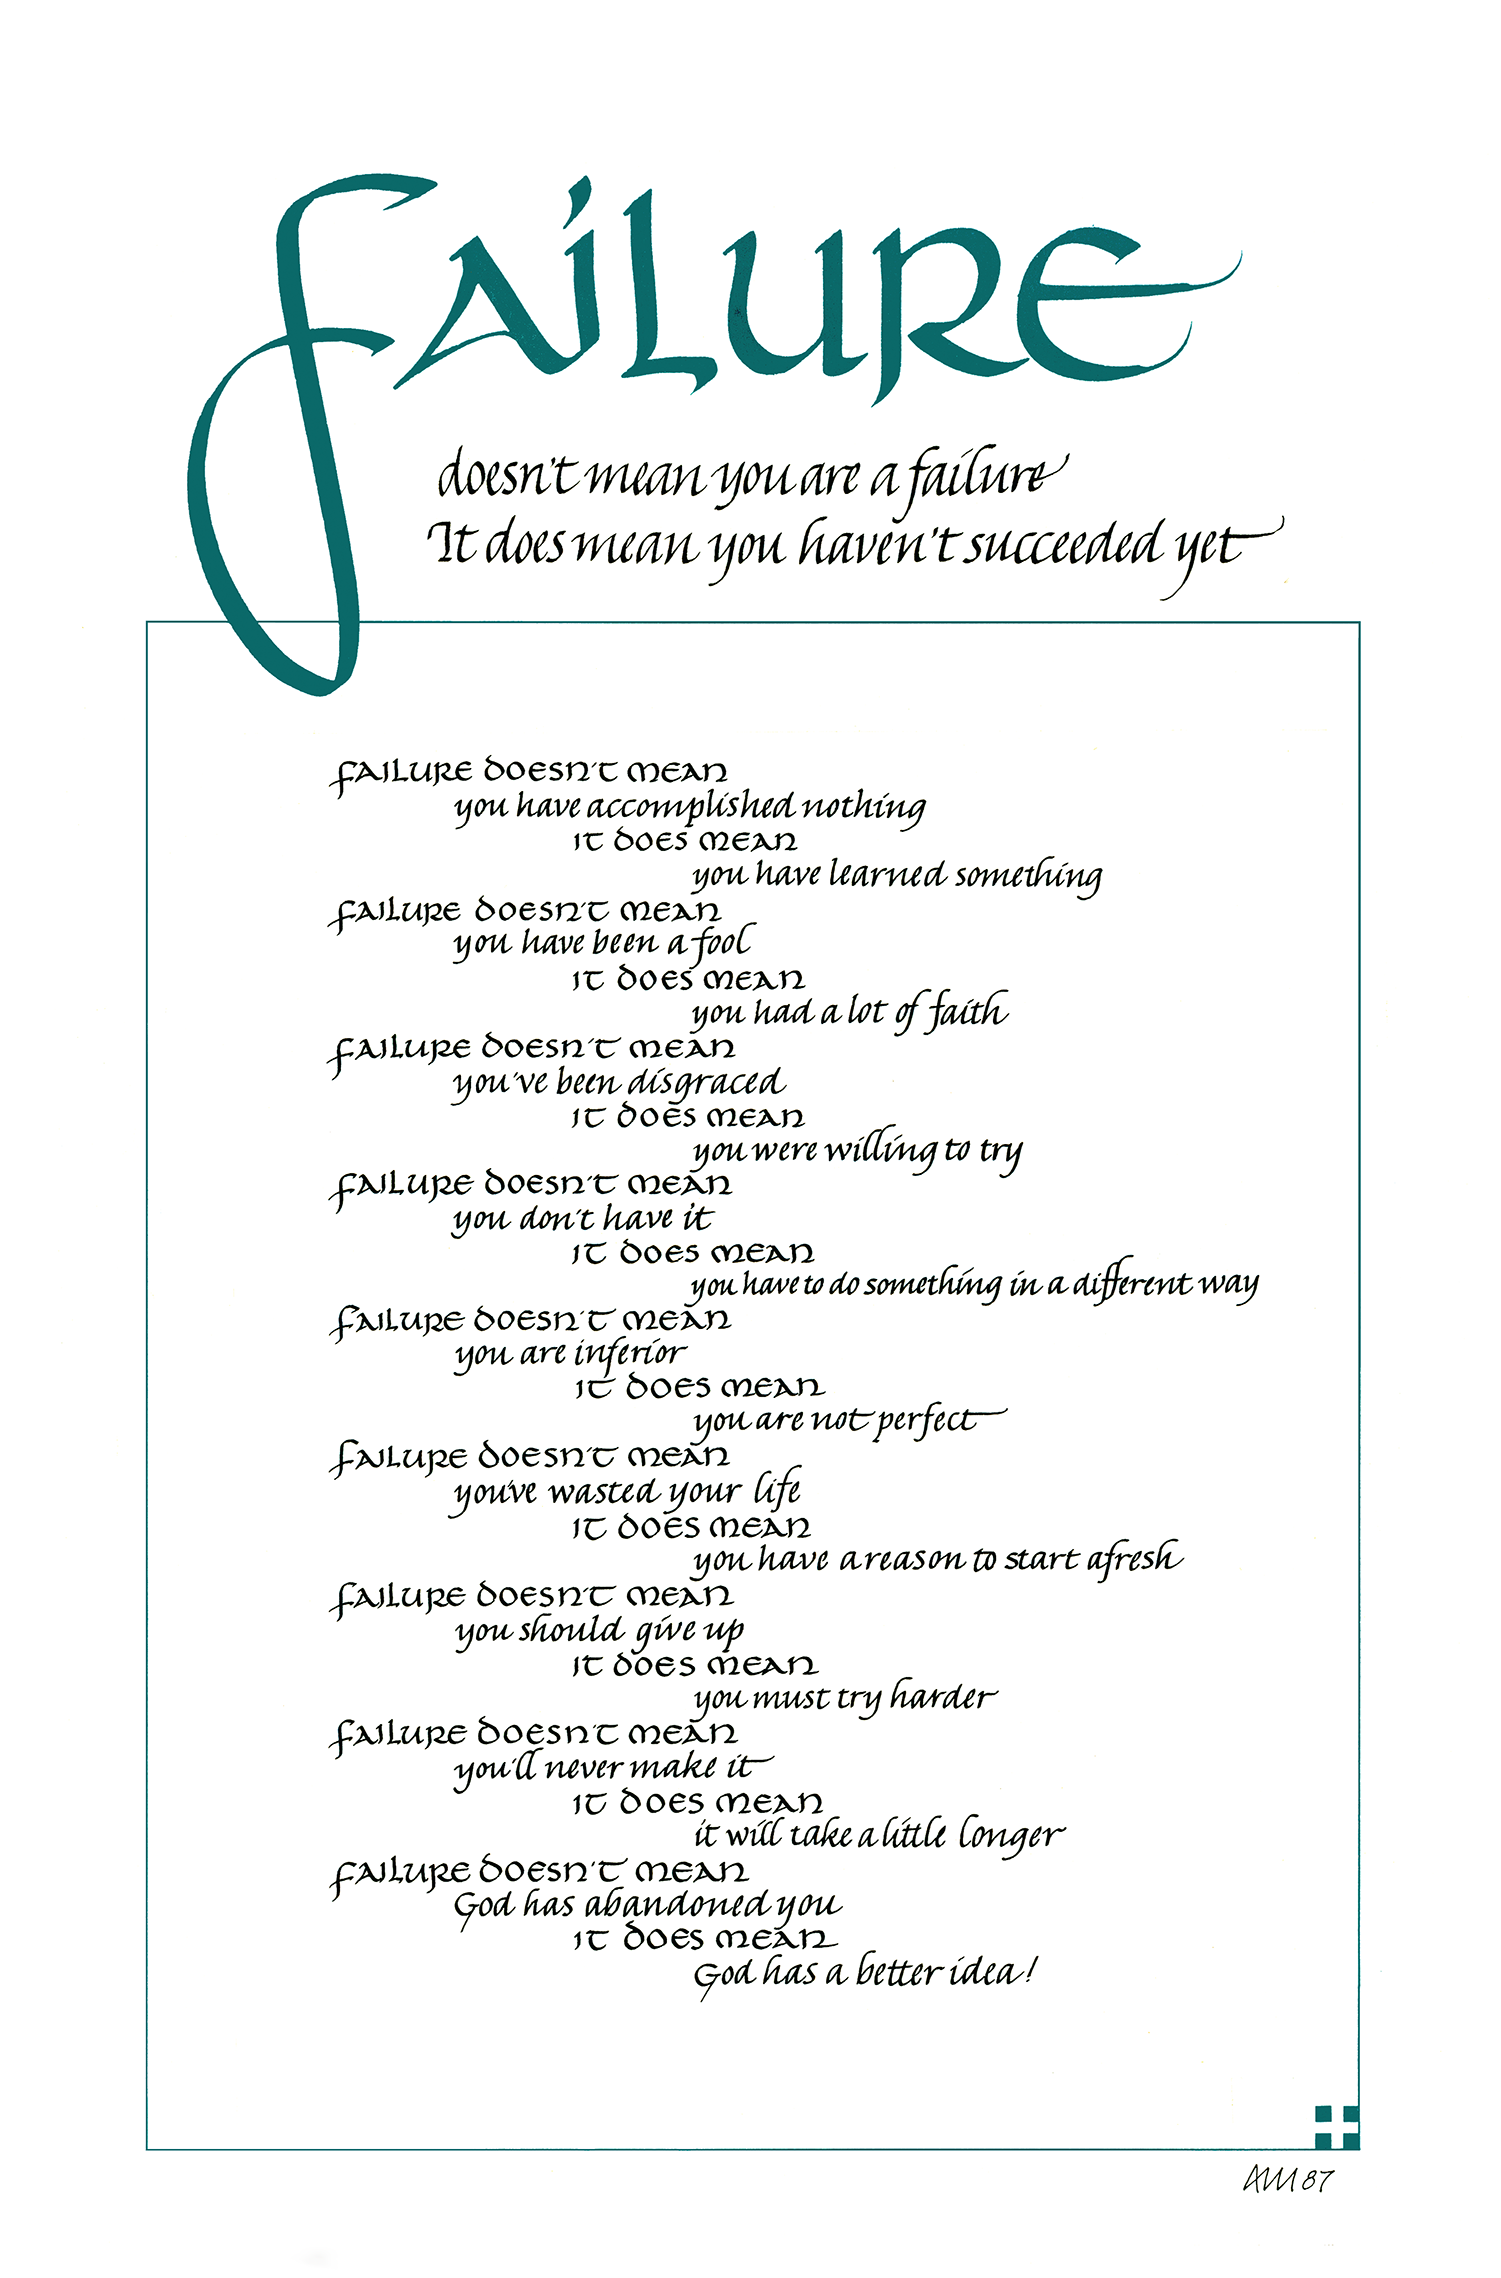 FAILURE
doesn't mean you are a failure
It does mean you haven't succeeded yet
FAILURE DOESN'T MEAN
you have accomplished nothing
IT DOES MEAN
you have learned something
FAILURE DOESN'T MEAN
you have been a fool
IT DOES MEAN
you had a lot of faith
FAILURE DOESN'T MEAN
you've been disgraced
IT DOES MEAN
you were willing to try
FAILURE DOESN'T MEAN
you don't have it
IT DOES MEAN
you have to do something in a different way
FAILURE DOESN'T MEAN
you are inferior
IT DOES MEAN
you are not perfect
FAILURE DOESN'T MEAN
you've wasted your life
IT DOES MEAN
you have a reason to start afresh
FAILURE DOESN'T MEAN
you should give up
IT DOES MEAN
you must try harder
FAILURE DOESN'T MEAN
you'll never make it
IT DOES MEAN
it will take a little longer
FAILURE DOESN'T MEAN
God has abandoned you
IT DOES MEAN
God has a better idea!
87